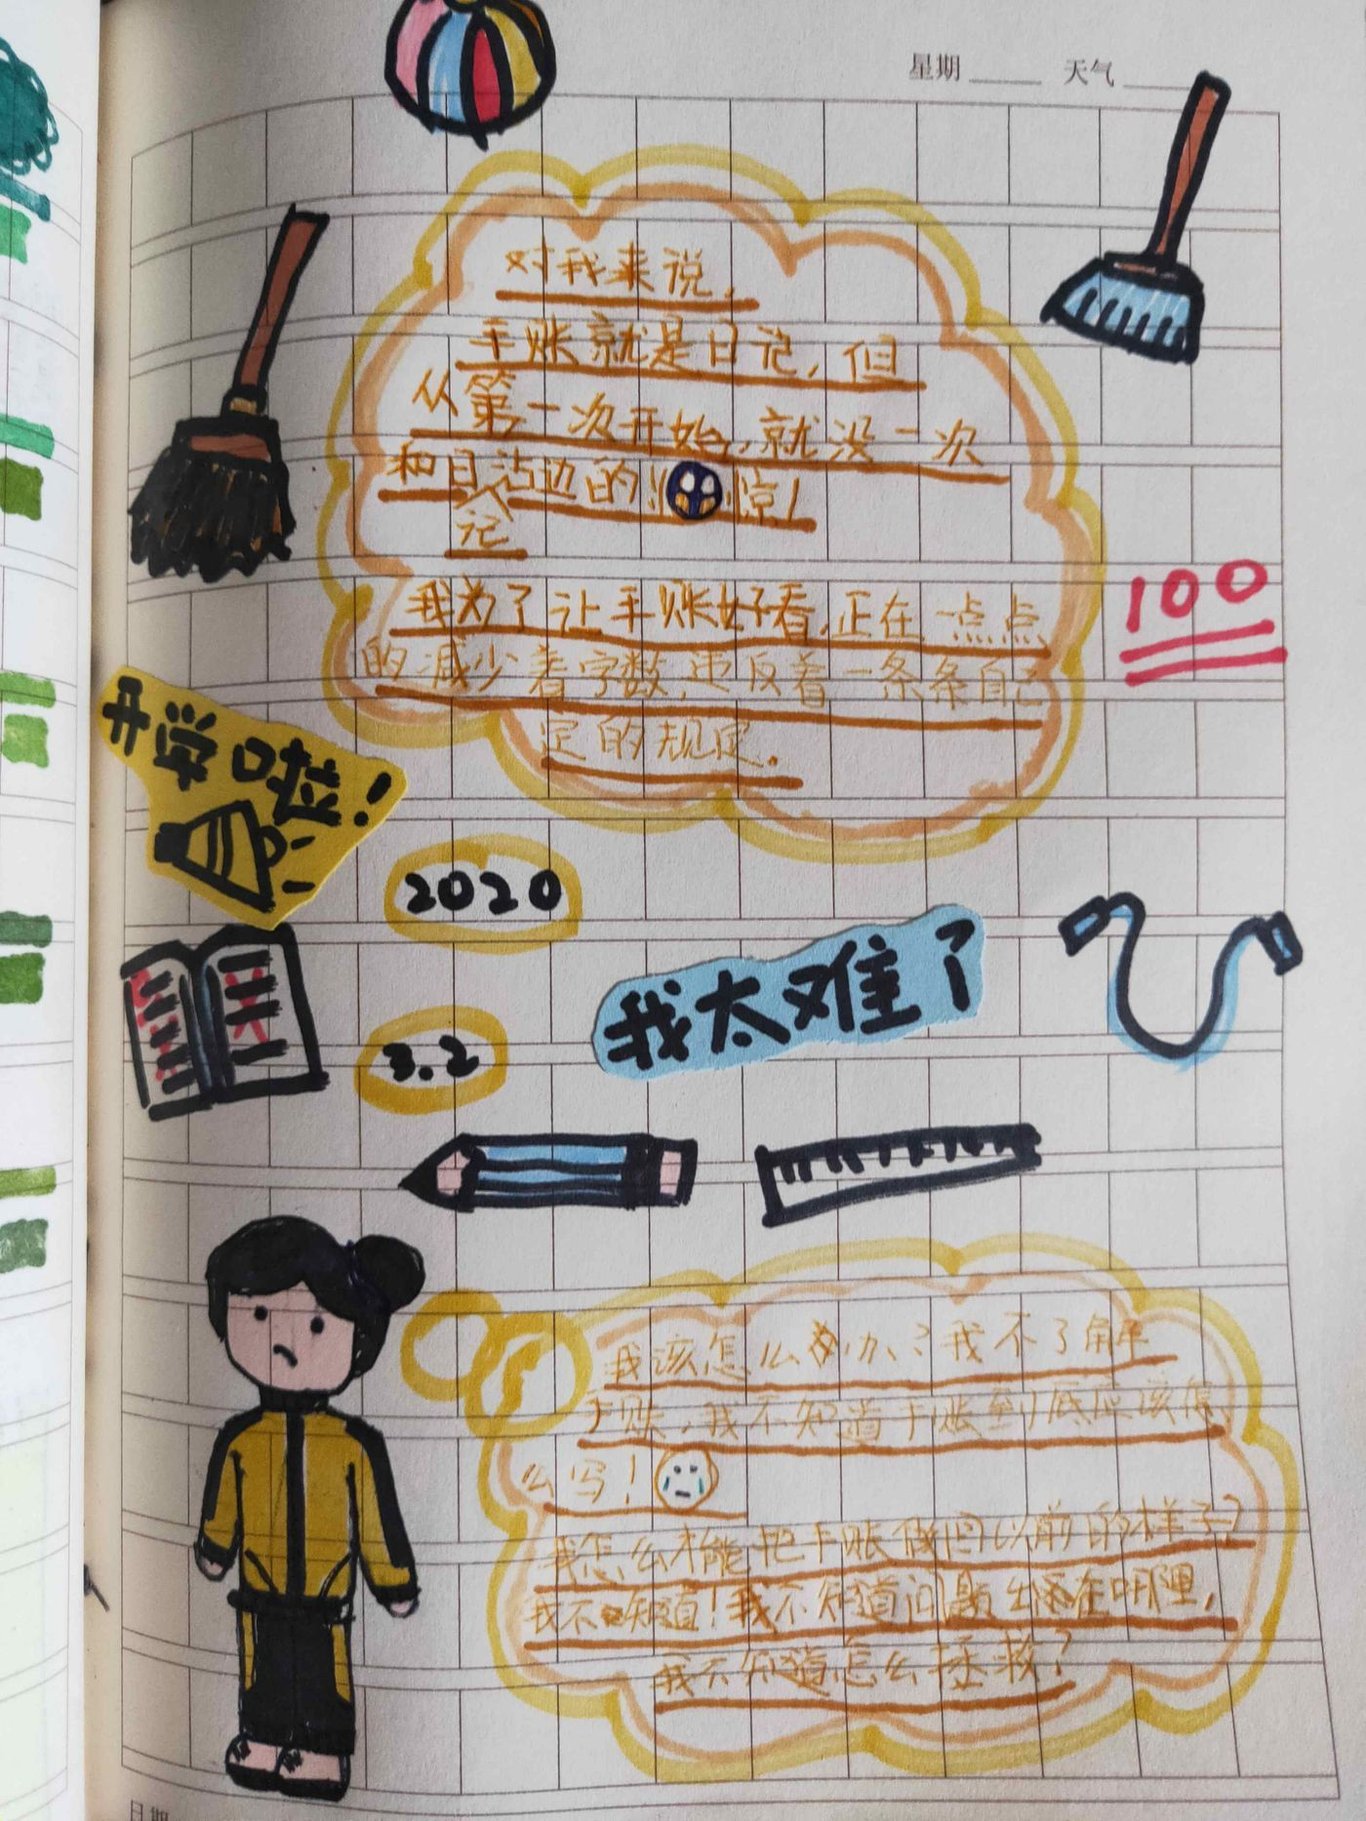 星期 天气
对我来说,
手账就是日记,但
从第一次开始,就没一次
和日沾边的!惊!
记
100
我为了让手账好看,正在一点点
的减少着字数,违反着一条条自己
定的规定.
开学啦!
2020
我太难了
3.2
我该怎么办?我不了解
手账,我不知道手账到底应该怎
么写!
我怎么才能把手账做回以前的样子?
我不知道!我不知道问题出在哪里,
我不知道怎么拯救?
日期